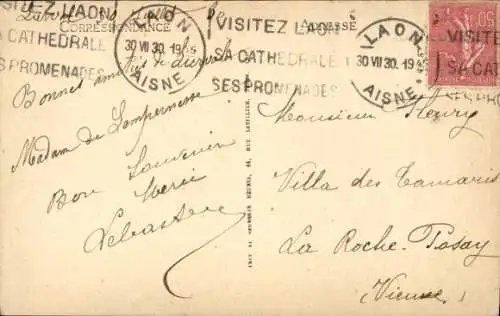 VISITEZ LAON
SA CATHEDRALE
SES PROMENADES
LAON
30 VII 30. 19
AISNE
VISITEZ LAON
SA CATHEDRALE
SES PROMENADES
LAON
30 VII 30. 19
AISNE
VISITE
SA CAT
50
CORRESPONDANCE
ADRESSE
Laon 30 Juillet
Bonnes amitiés de
Madame de
Bon Souvenir
Lebasseur
Monsieur Fleury
Villa des Tamaris
La Roche-Posay
(Vienne)